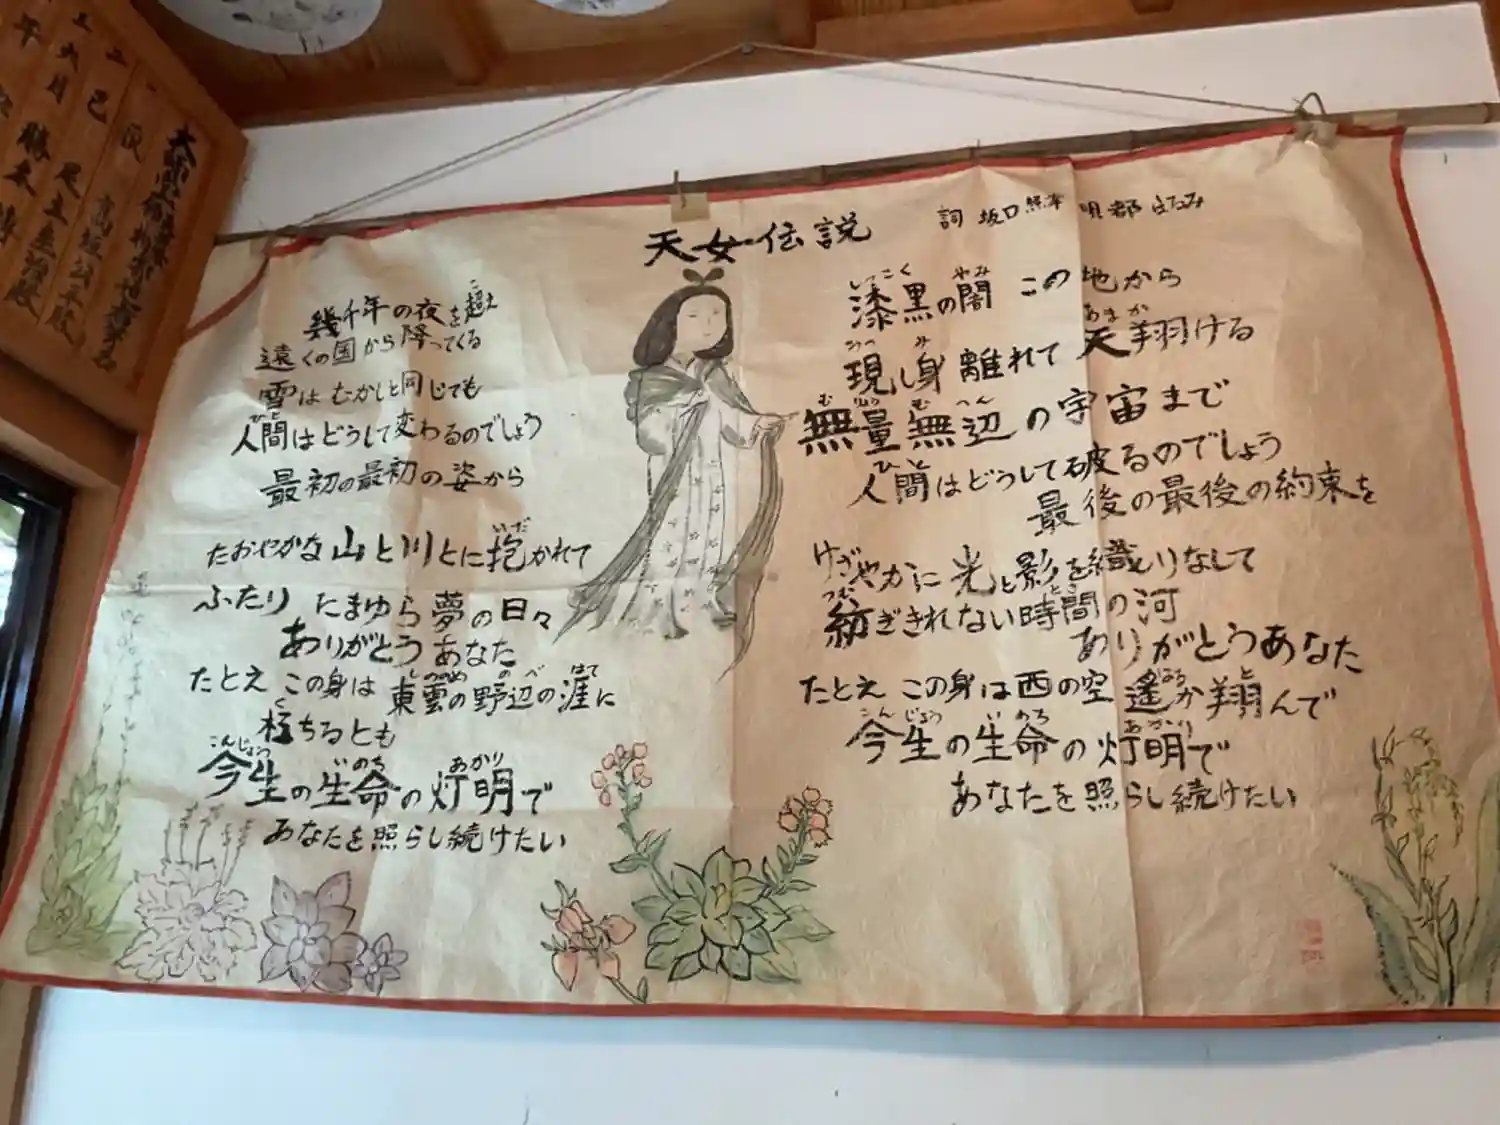 天女伝説
詞 坂口
唄 都 はるみ
幾千年の夜を超え
遠くの国から降ってくる
雪はむかしと同じでも
人間はどうして変わるのでしょう
最初の最初の姿から
たおやかな山と川とに抱かれて
ふたり たまゆら夢の日々
ありがとう あなた
たとえ この身は 東雲の野辺の涯に
朽ちるとも
今生の生命の灯明で
あなたを照らし続けたい
漆黒の闇 この地から
現し身離れて 天翔ける
無量無辺の宇宙まで
人間はどうして破るのでしょう
最後の最後の約束を
けざやかに 光と影を織りなして
紡ぎきれない時間の河
ありがとうあなた
たとえ この身は西の空 遙か翔んで
今生の生命の灯明で
あなたを照らし続けたい